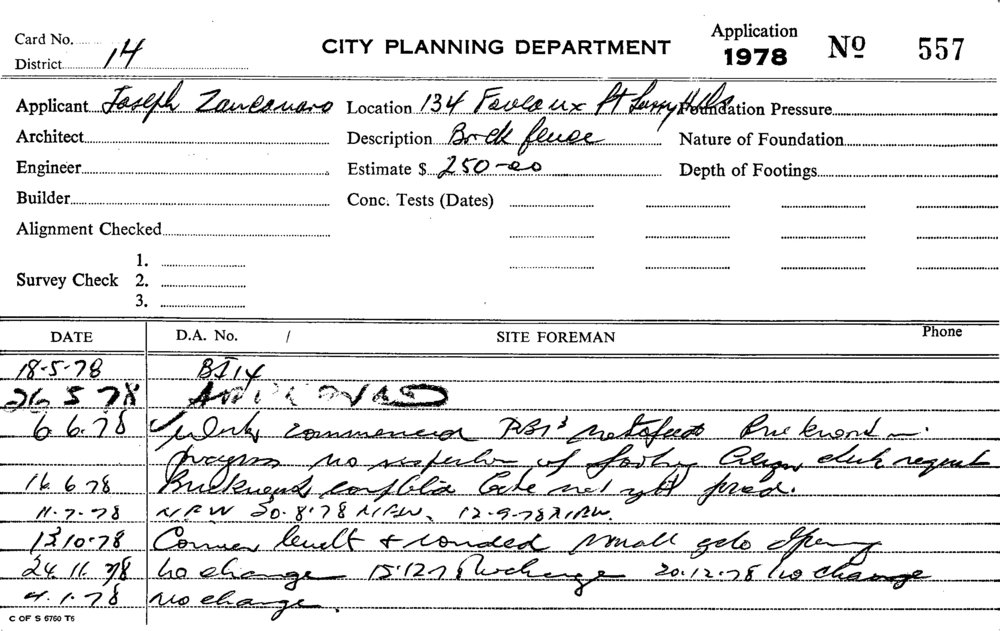 Card No.
CITY PLANNING DEPARTMENT
Application
1978
Nº 557
District 14
Applicant Joseph Zancanaro Location 134 Foveaux St Surry Hills Foundation Pressure
Architect Description Brick fence Nature of Foundation
Engineer Estimate $ 250-00 Depth of Footings
Builder Conc. Tests (Dates)
Alignment Checked
1.
Survey Check 2.
3.
DATE D.A. No. / SITE FOREMAN Phone
18-5-78 BI14
26 5 78 APPROVED
6.6.78 Works commenced Brickwork in
progress no inspection of footing Align check request
16.6.78 Brickwork complete Gate not yet fixed.
11-7-78 N.F.W 30-8-78 N.F.W. 12-9-78 N.F.W.
13.10.78 Corner built & rounded small gate opening
24.11.78 No change 15.12.78 No change 20.12.78 No change
4.1.78 No change.
C OF S 6760 T6